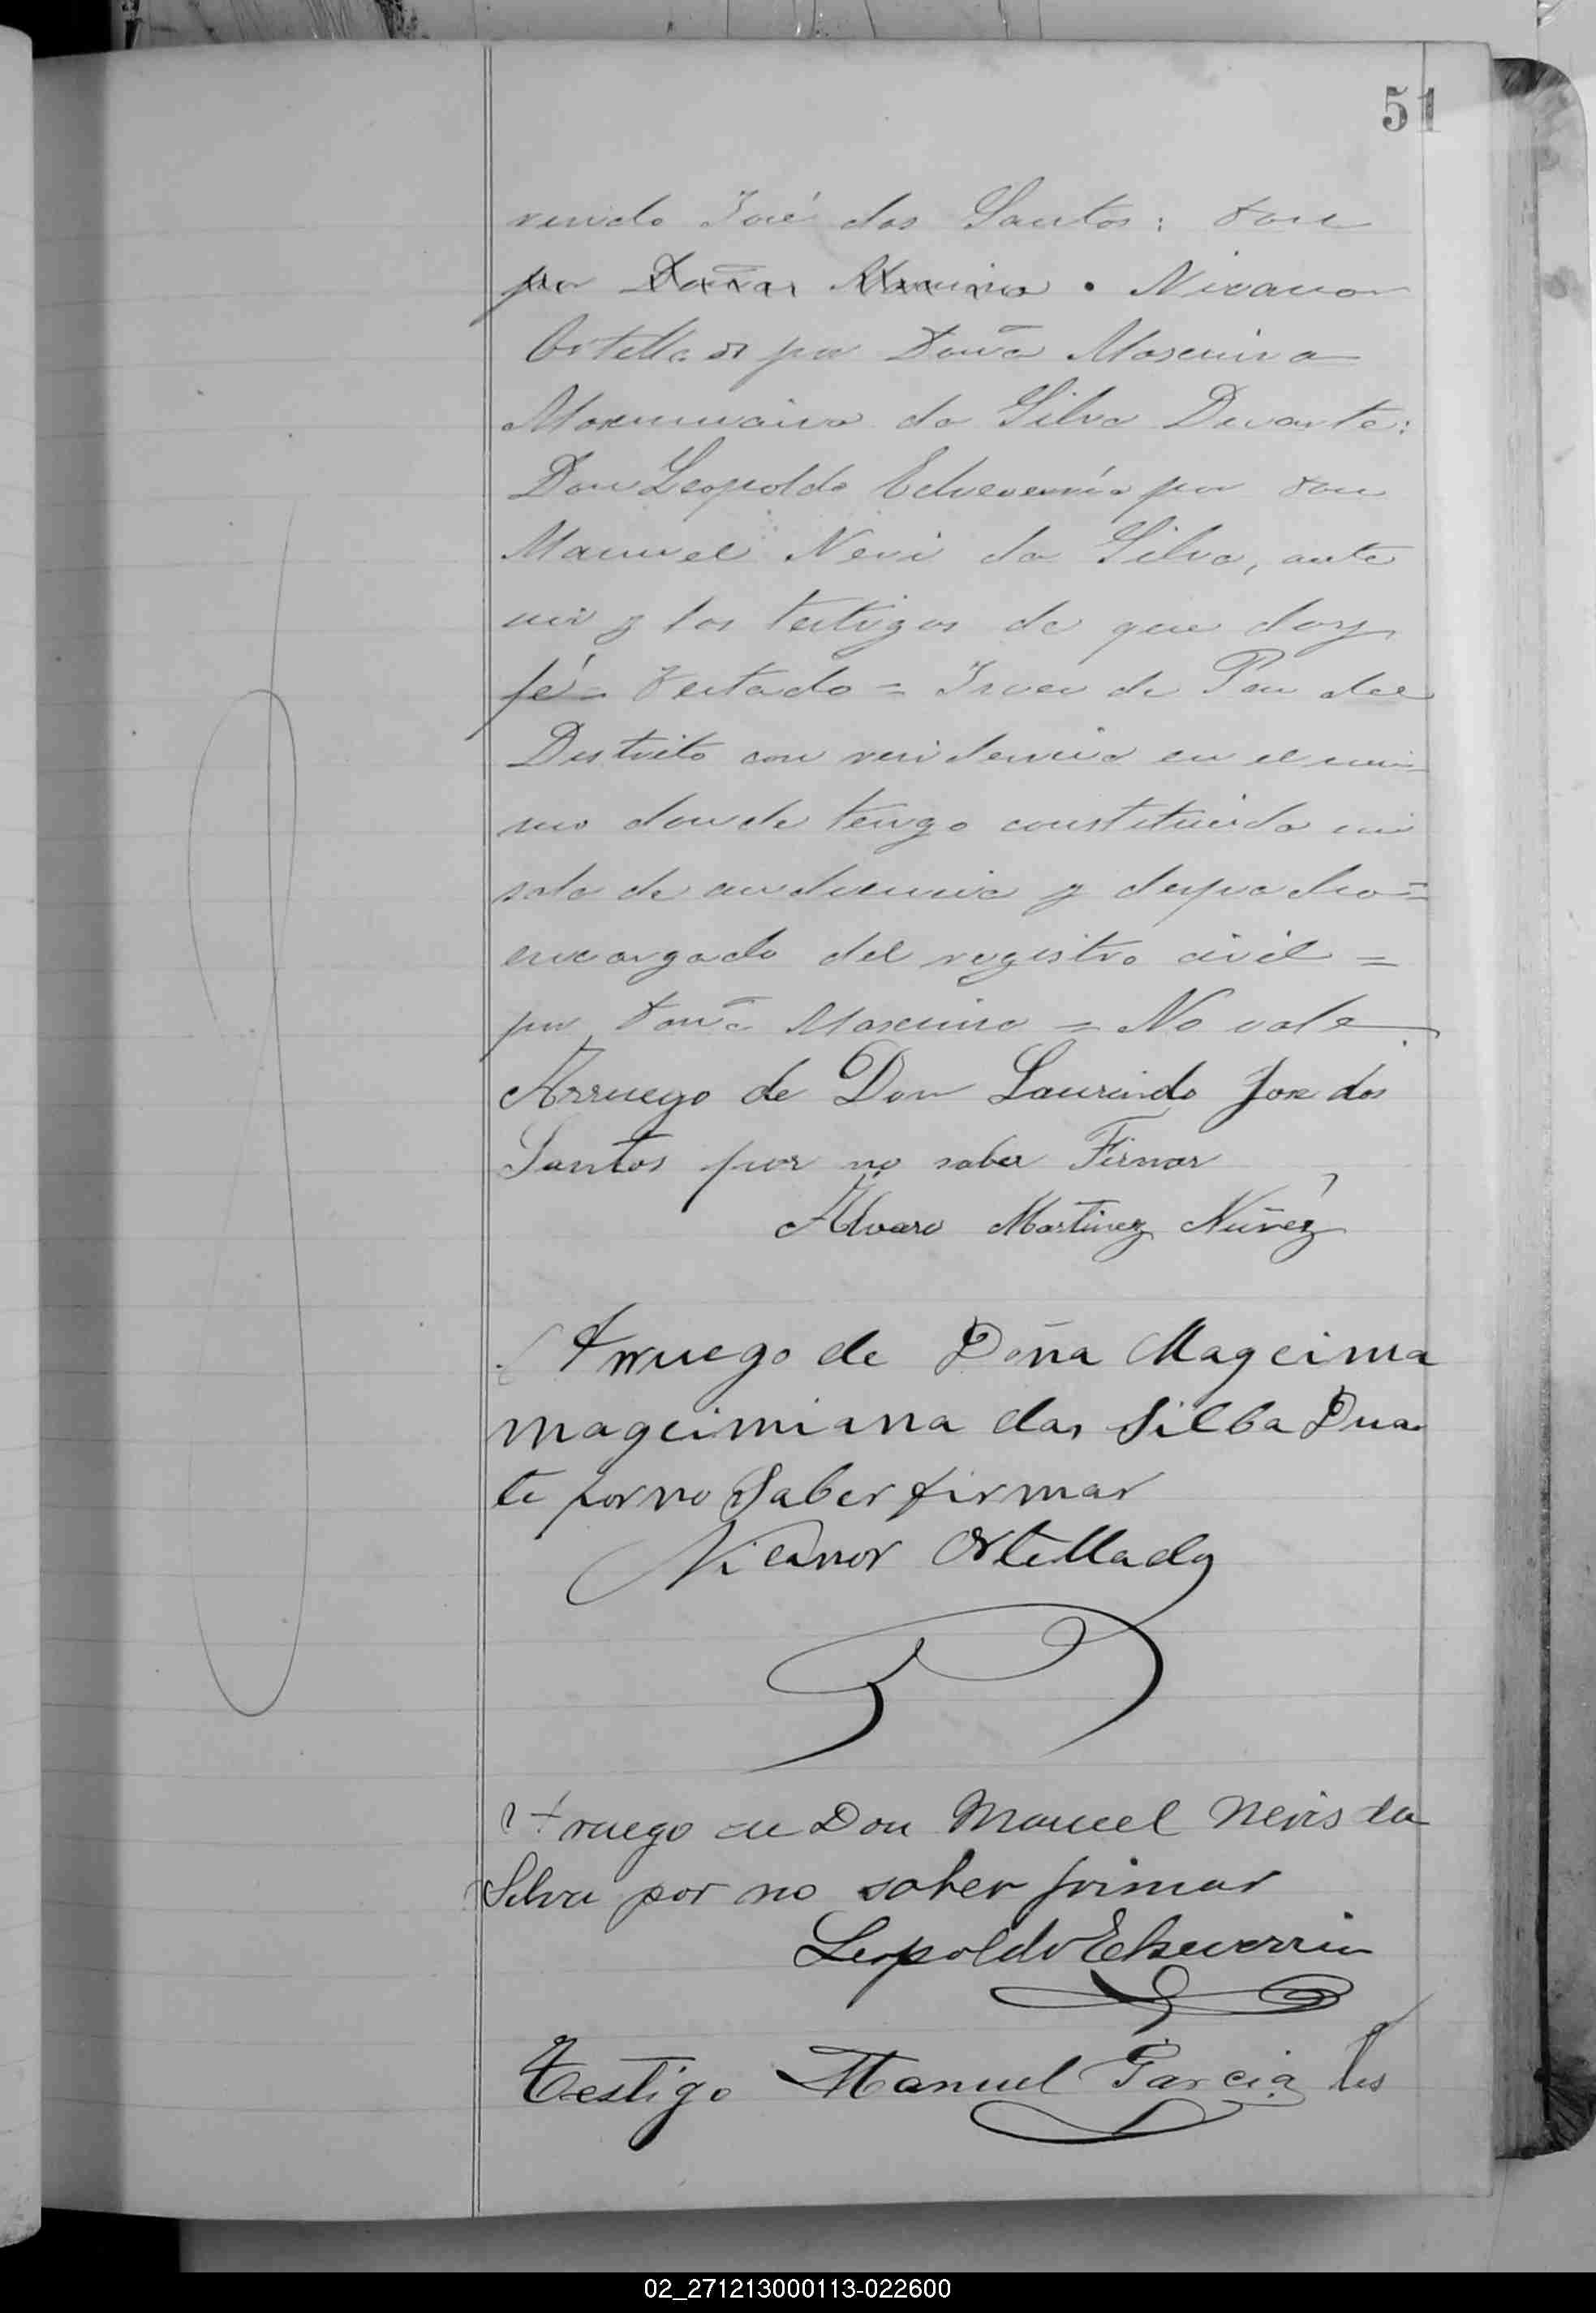 51
rindo José dos Santos: don
por Doña Maxima. Nicanor
Ortellado por Doña Maxima
Maximiana da Silva Duarte:
Don Leopoldo Echeverría por don
Manuel Nevi da Silva, ante
mi y los testigos de que doy
fé = Testado = Juez de Paz del
Distrito con residencia en el mis
mo donde tengo constituida mi
sala de audiencia y despacho =
encargado del registro civil =
por Doña Maxima = No vale
Arruego de Don Laurindo Jose dos
Santos por no saber Firmar
Alvaro Martinez Núñez
Arruego de Doña Magcima
magcimiana das Silba Dua
te por no Saber firmar
Nicanor Ortellado
A ruego de Don Manuel Nevis da
Silva por no saber firmar
Leopoldo Echeverria
Testigo Manuel Garcia
02_271213000113-022600